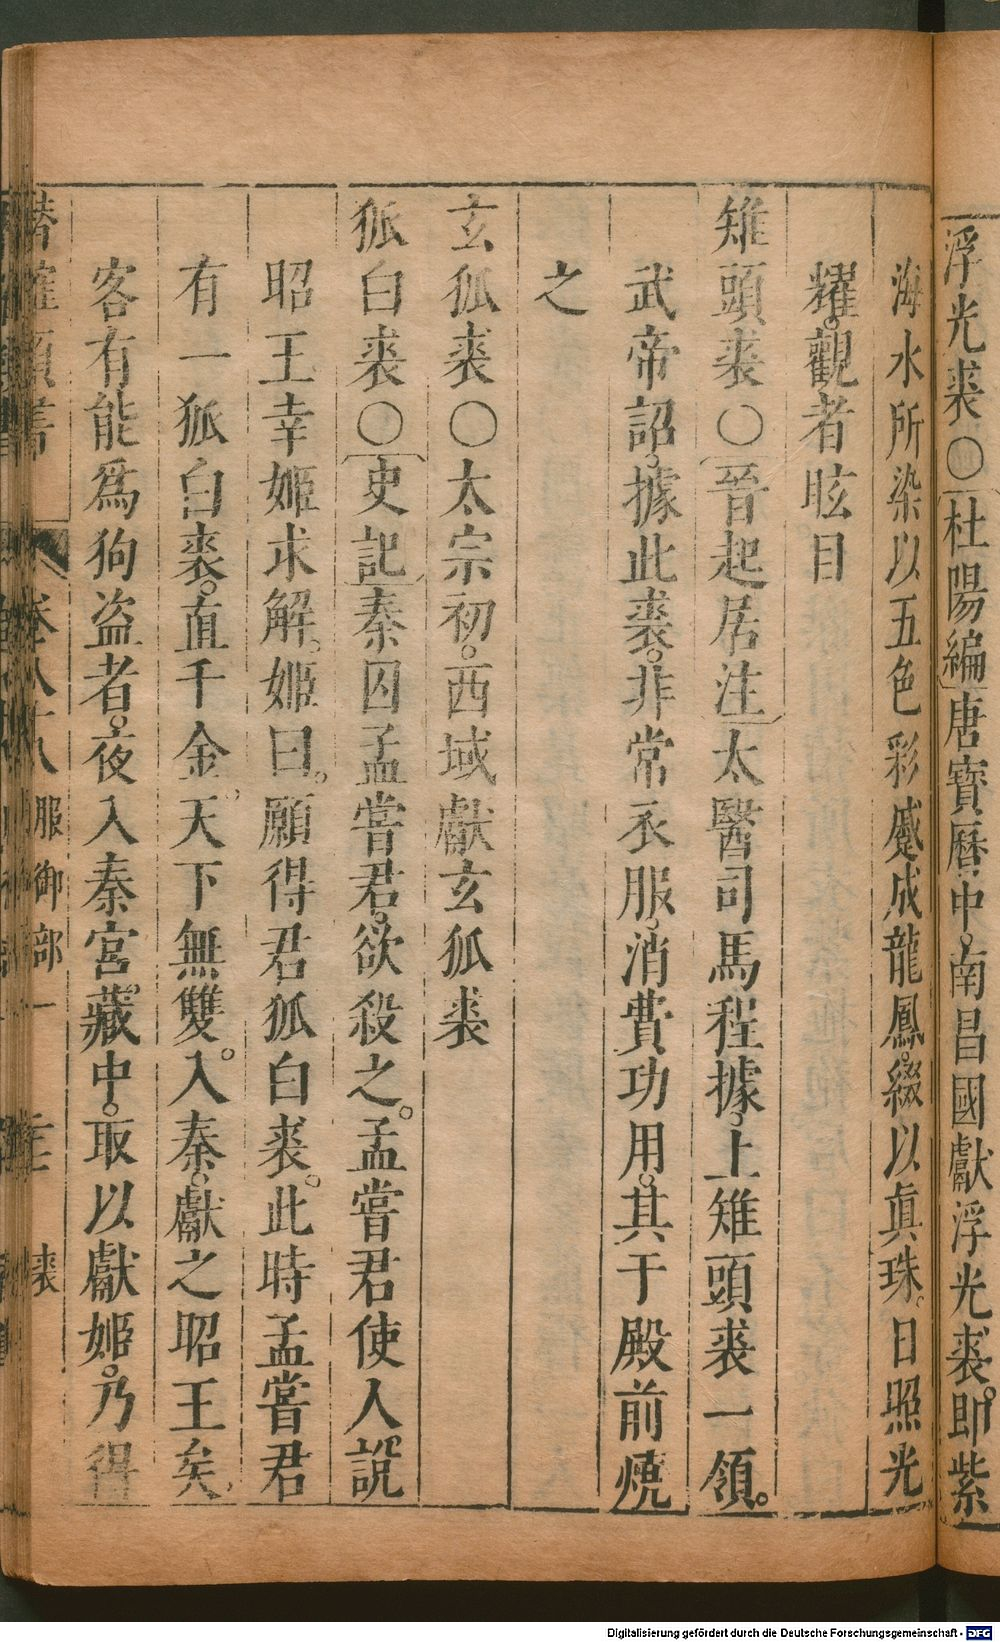 浮光裘〇杜陽編唐寶曆中。南昌國獻浮光裘。即紫
海水所染以五色彩蹙成龍鳳。綴以眞珠。日照光
耀。觀者眩目
雉頭裘〇晉起居注太醫司馬程據。上雉頭裘一領。
武帝詔。據此裘。非常衣服。消費功用。其于殿前燒
之
玄狐裘〇太宗初。西域獻玄狐裘
狐白裘〇史記秦囚孟嘗君。欲殺之。孟嘗君使人說
昭王幸姬求解。姬曰。願得君狐白裘。此時孟嘗君
有一狐白裘。直千金。天下無雙。入秦。獻之昭王矣。
客有能爲狗盗者。夜入秦宮。藏中。取以獻姬。乃得
卷八十八 服御部一 裘
Digitalisierung gefördert durch die Deutsche Forschungsgemeinschaft - DFG